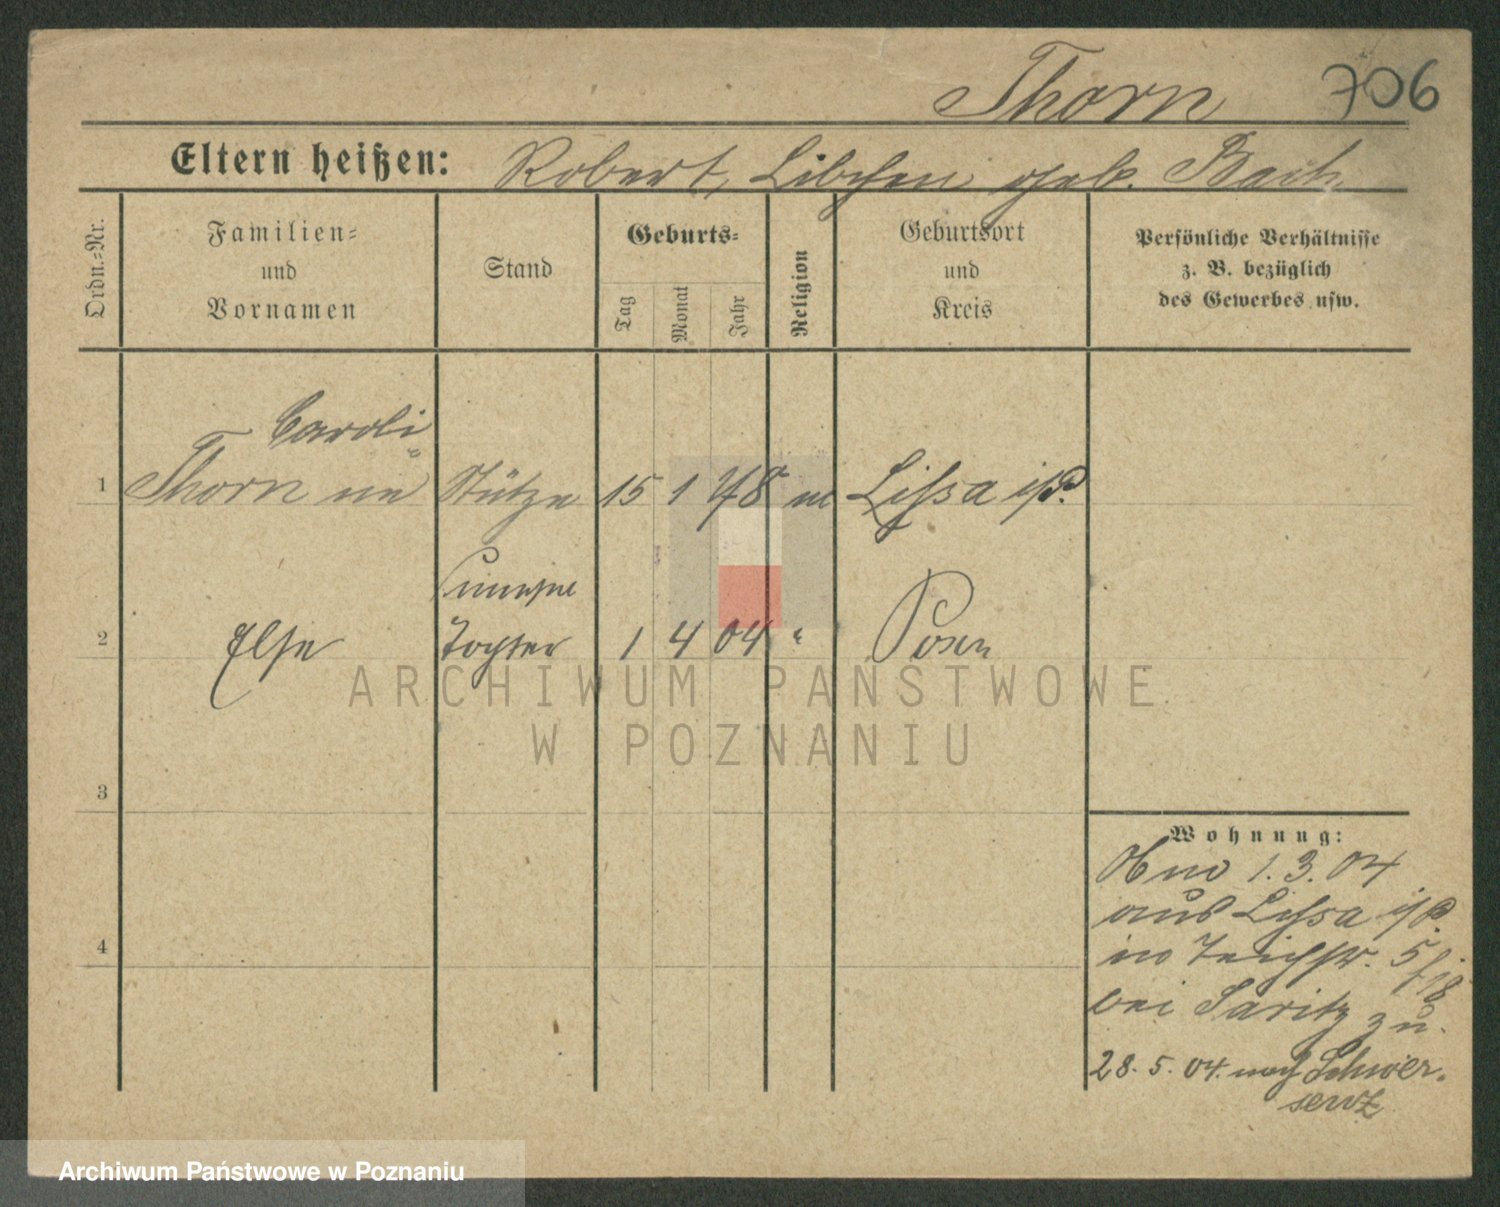 Thorn 706
Eltern heißen: Robert, Libchen geb. Bach
Ordn.-Nr.
Familien-
und
Vornamen
Stand
Geburts-
Tag
Monat
Jahr
Religion
Geburtsort
und
Kreis
Persönliche Verhältnisse
z. B. bezüglich
des Gewerbes usw.
Caroli
1 Thorn ne Stütze 15 1 78 m Lissa i/P.
2 Else Tochter 1 4 04 " Posen
3
4
Wohnung:
1. 3. 04
aus Lissa i/P.
in Teichstr. 5
bei Saritz zu.
28. 5. 04. nach Schwer-
senz
ARCHIWUM PAŃSTWOWE
W POZNANIU
Archiwum Państwowe w Poznaniu